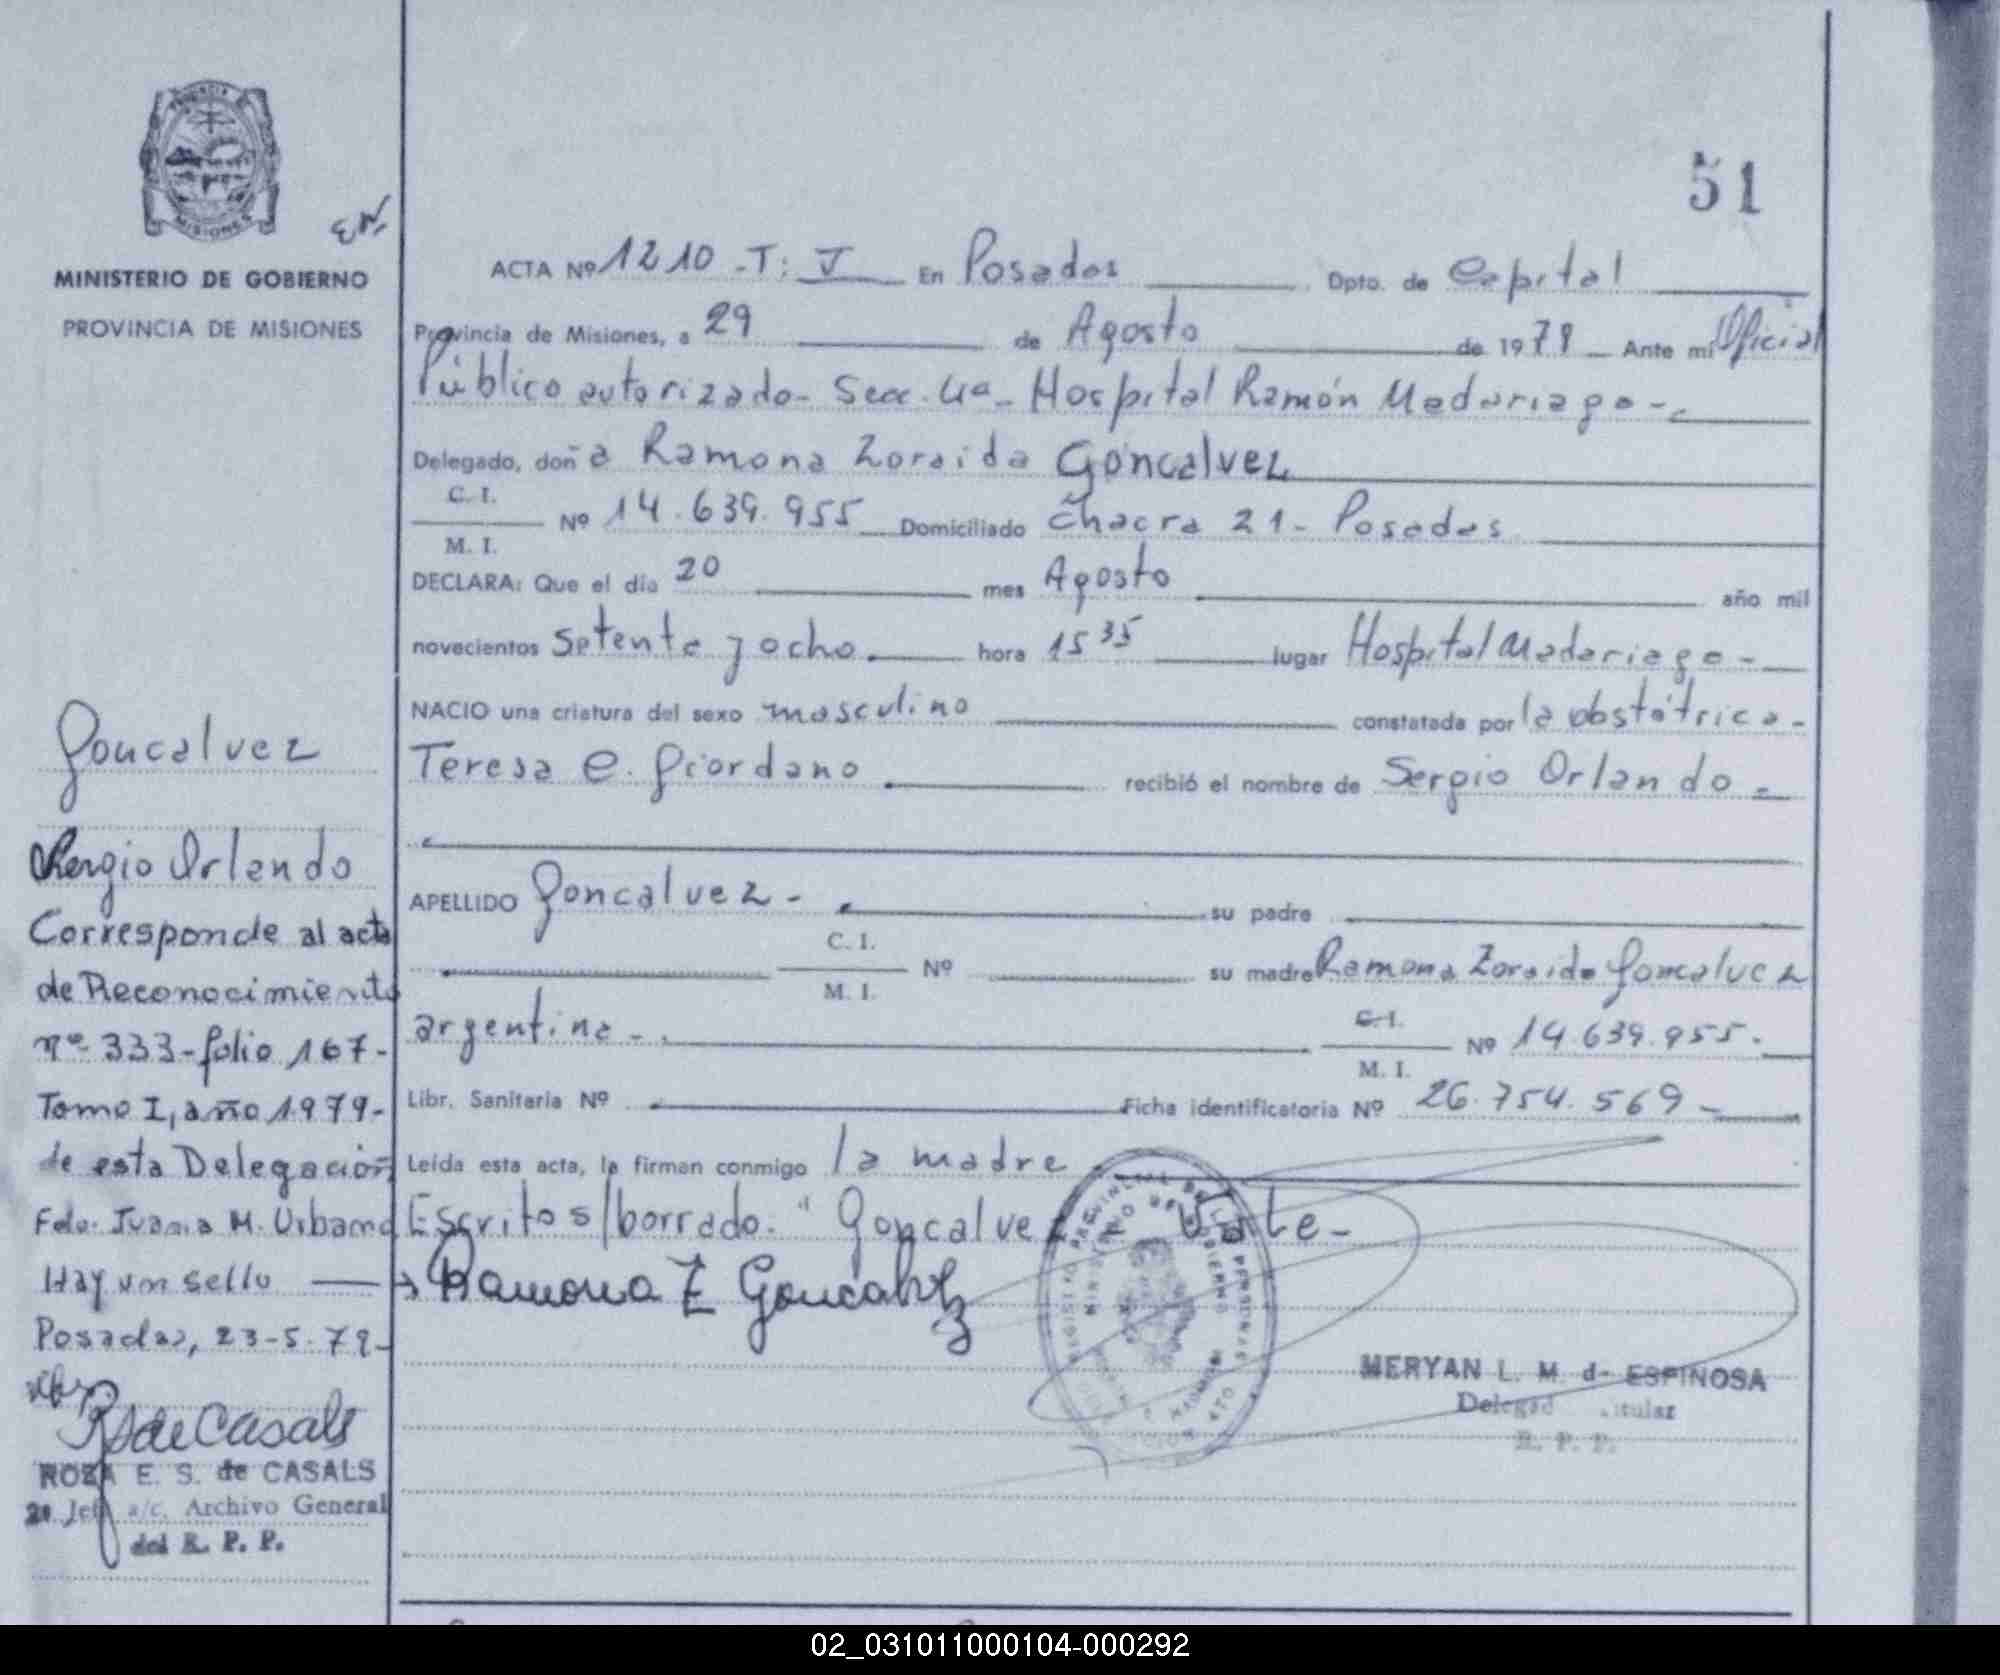 PROVINCIA DE
MISIONES
MINISTERIO DE GOBIERNO
PROVINCIA DE MISIONES
51
ACTA Nº 1210 - T: V En Posadas Dpto. de Capital
Provincia de Misiones, a 29 de Agosto de 1978 Ante mi Oficial
Público autorizado - Secc. 4ª - Hospital Ramón Madariaga -
Delegado, doña Ramona Zoraida Goncalvez
C. I.
M. I. Nº 14.639.955 Domiciliado Chacra 21 - Posadas
DECLARA: Que el día 20 mes Agosto año mil
novecientos setenta y ocho hora 15 35 lugar Hospital Madariaga -
NACIO una criatura del sexo masculino constatada por la obstétrica -
Teresa E. Giordano recibió el nombre de Sergio Orlando -
APELLIDO Goncalvez - su padre
C. I.
M. I. Nº su madre Ramona Zoraida Goncalvez
argentina - C. I.
M. I. Nº 14.639.955.
Libr. Sanitaria Nº Ficha identificatoria Nº 26.754.569 -
Leída esta acta, la firman conmigo la madre
Escritos/borrado: "Goncalvez" Vale -
Ramona Z Goncalvez
MERYAN L. M. de ESPINOSA
Delegad Titular
R. P. P.
Goncalvez
Sergio Orlando
Corresponde al acta
de Reconocimiento
nº 333 - folio 167 -
Tomo I, año 1979 -
de esta Delegación
Fdo. Juana M. Urbano
Hay un sello
Posadas, 23-5-79 -
RSde Casals
ROZA E. S. de CASALS
2º Jefe a/c. Archivo General
del R. P. P.
02_031011000104-000292